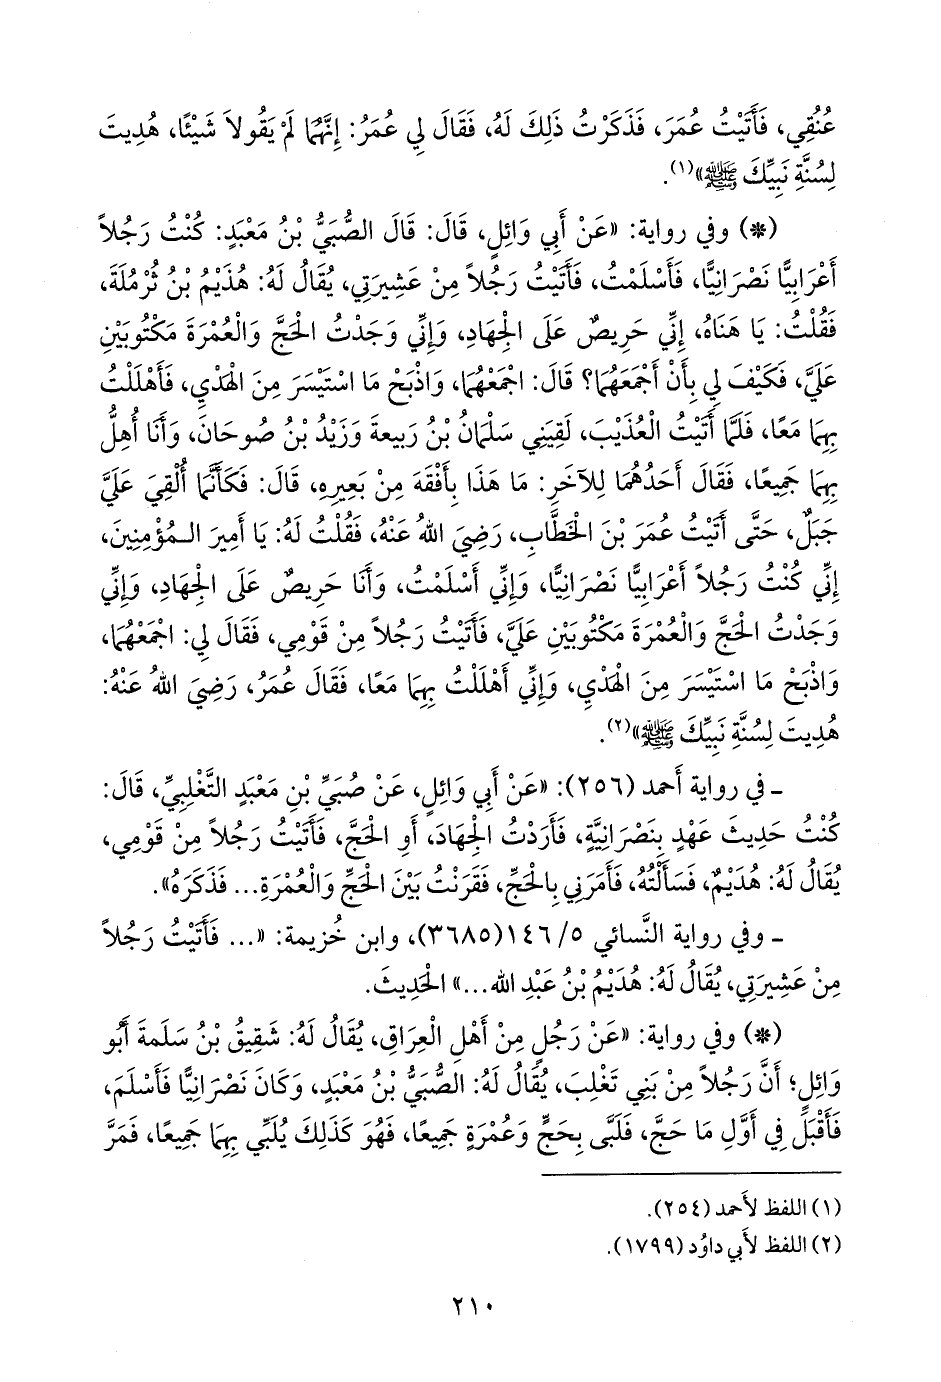 عُنُقِي، فَأَتَيْتُ عُمَرَ، فَذَكَرْتُ ذَلِكَ لَهُ، فَقَالَ لِي عُمَرُ: إِنَّهُمَا لَمْ يَقُولاَ شَيْئًا، هُدِيتَ
لِسُنَّةِ نَبِيِّكَ ﷺ»(١).
(*) وفي رواية: «عَنْ أَبِي وَائِلٍ، قَالَ: قَالَ الصُّبَيُّ بْنُ مَعْبَدٍ: كُنْتُ رَجُلاً
أَعْرَابِيًّا نَصْرَانِيًّا، فَأَسْلَمْتُ، فَأَتَيْتُ رَجُلاً مِنْ عَشِيرَتِي، يُقَالُ لَهُ: هُذَيْمُ بْنُ ثُرْمُلَةَ،
فَقُلْتُ: يَا هَنَاهُ، إِنِّي حَرِيصٌ عَلَى الْجِهَادِ، وَإِنِّي وَجَدْتُ الْحَجَّ وَالْعُمْرَةَ مَكْتُوبَيْنِ
عَلَيَّ، فَكَيْفَ لِي بِأَنْ أَجْمَعَهُمَا؟ قَالَ: اجْمَعْهُمَا، وَاذْبَحْ مَا اسْتَيْسَرَ مِنَ الْهَدْيِ، فَأَهْلَلْتُ
بِهِمَا مَعًا، فَلَمَّا أَتَيْتُ الْعُذَيْبَ، لَقِيَنِي سَلْمَانُ بْنُ رَبِيعةَ وَزَيْدُ بْنُ صُوحَانَ، وَأَنَا أُهِلُّ
بِهِمَا جَمِيعًا، فَقَالَ أَحَدُهُمَا لِلآخَرِ: مَا هَذَا بِأَفْقَهَ مِنْ بَعِيرِهِ، قَالَ: فَكَأَنَّمَا أُلْقِيَ عَلَيَّ
جَبَلٌ، حَتَّى أَتَيْتُ عُمَرَ بْنَ الْخَطَّابِ، رَضِيَ اللهُ عَنْهُ، فَقُلْتُ لَهُ: يَا أَمِيرَ الـمُؤْمِنِينَ،
إِنِّي كُنْتُ رَجُلاً أَعْرَابِيًّا نَصْرَانِيًّا، وَإِنِّي أَسْلَمْتُ، وَأَنَا حَرِيصٌ عَلَى الْجِهَادِ، وَإِنِّي
وَجَدْتُ الْحَجَّ وَالْعُمْرَةَ مَكْتُوبَيْنِ عَلَيَّ، فَأَتَيْتُ رَجُلاً مِنْ قَوْمِي، فَقَالَ لِي: اجْمَعْهُمَا،
وَاذْبَحْ مَا اسْتَيْسَرَ مِنَ الْهَدْيِ، وَإِنِّي أَهْلَلْتُ بِهِمَا مَعًا، فَقَالَ عُمَرُ، رَضِيَ اللهُ عَنْهُ:
هُدِيتَ لِسُنَّةِ نَبِيِّكَ ﷺ»(٢).
- في رواية أحمد (٢٥٦): «عَنْ أَبِي وَائِلٍ، عَنْ صُبَيِّ بْنِ مَعْبَدٍ التَّغْلِبِيِّ، قَالَ:
كُنْتُ حَدِيثَ عَهْدٍ بِنَصْرَانِيَّةٍ، فَأَرَدْتُ الْجِهَادَ، أَوِ الْحَجَّ، فَأَتَيْتُ رَجُلاً مِنْ قَوْمِي،
يُقَالُ لَهُ: هُدَيْمٌ، فَسَأَلْتُهُ، فَأَمَرَنِي بِالْحَجِّ، فَقَرَنْتُ بَيْنَ الْحَجِّ وَالْعُمْرَةِ... فَذَكَرَهُ».
- وفي رواية النَّسائي ٥/ ١٤٦(٣٦٨٥)، وابن خُزيمة: «... فَأَتَيْتُ رَجُلاً
مِنْ عَشِيرَتِي، يُقَالُ لَهُ: هُدَيْمُ بْنُ عَبْدِ الله...» الْحَدِيثَ.
(*) وفي رواية: «عَنْ رَجُلٍ مِنْ أَهْلِ الْعِرَاقِ، يُقَالُ لَهُ: شَقِيقُ بْنُ سَلَمةَ أَبُو
وَائِلٍ؛ أَنَّ رَجُلاً مِنْ بَنِي تَغْلِبَ، يُقَالُ لَهُ: الصُّبَيُّ بْنُ مَعْبَدٍ، وَكَانَ نَصْرَانِيًّا فَأَسْلَمَ،
فَأَقْبَلَ فِي أَوَّلِ مَا حَجَّ، فَلَبَّى بِحَجٍّ وَعُمْرَةٍ جَمِيعًا، فَهُوَ كَذَلِكَ يُلَبِّي بِهِمَا جَمِيعًا، فَمَرَّ
(١) اللفظ لأَحمد (٢٥٤).
(٢) اللفظ لأَبي داوُد (١٧٩٩).
٢١٠